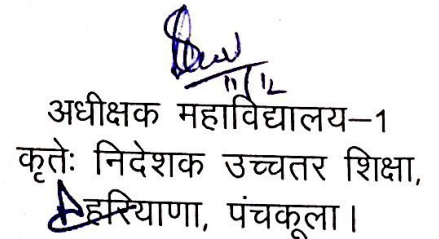 11/12
अधीक्षक महाविद्यालय–1
कृतेः निदेशक उच्चतर शिक्षा,
हरियाणा, पंचकूला।